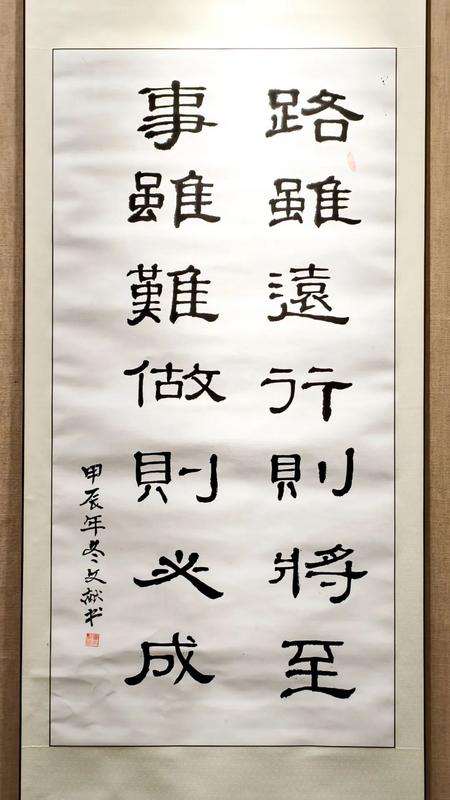 路雖遠行則將至
事雖難做則必成
甲辰年冬文献书